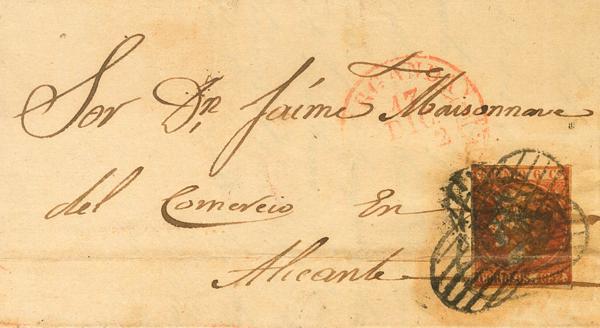 Sor Dn Jaime Maisonnave
del Comercio En
Alicante
17
DIC